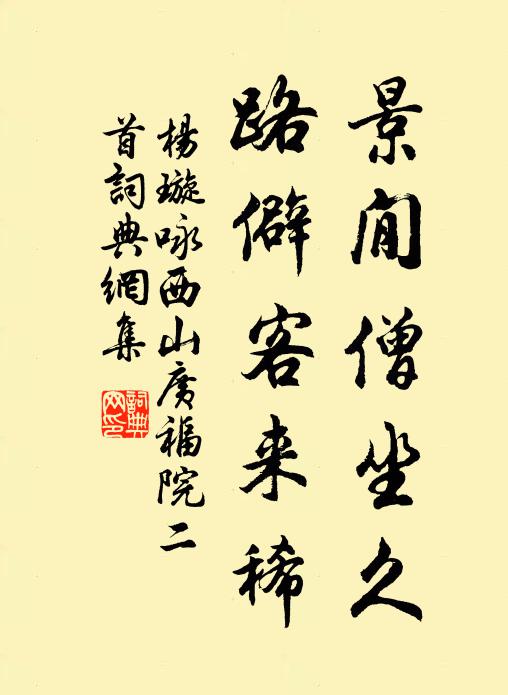 景閒僧坐久
路僻客来稀
楊璇咏西山廣福院二
首詞典網集
詞典网印